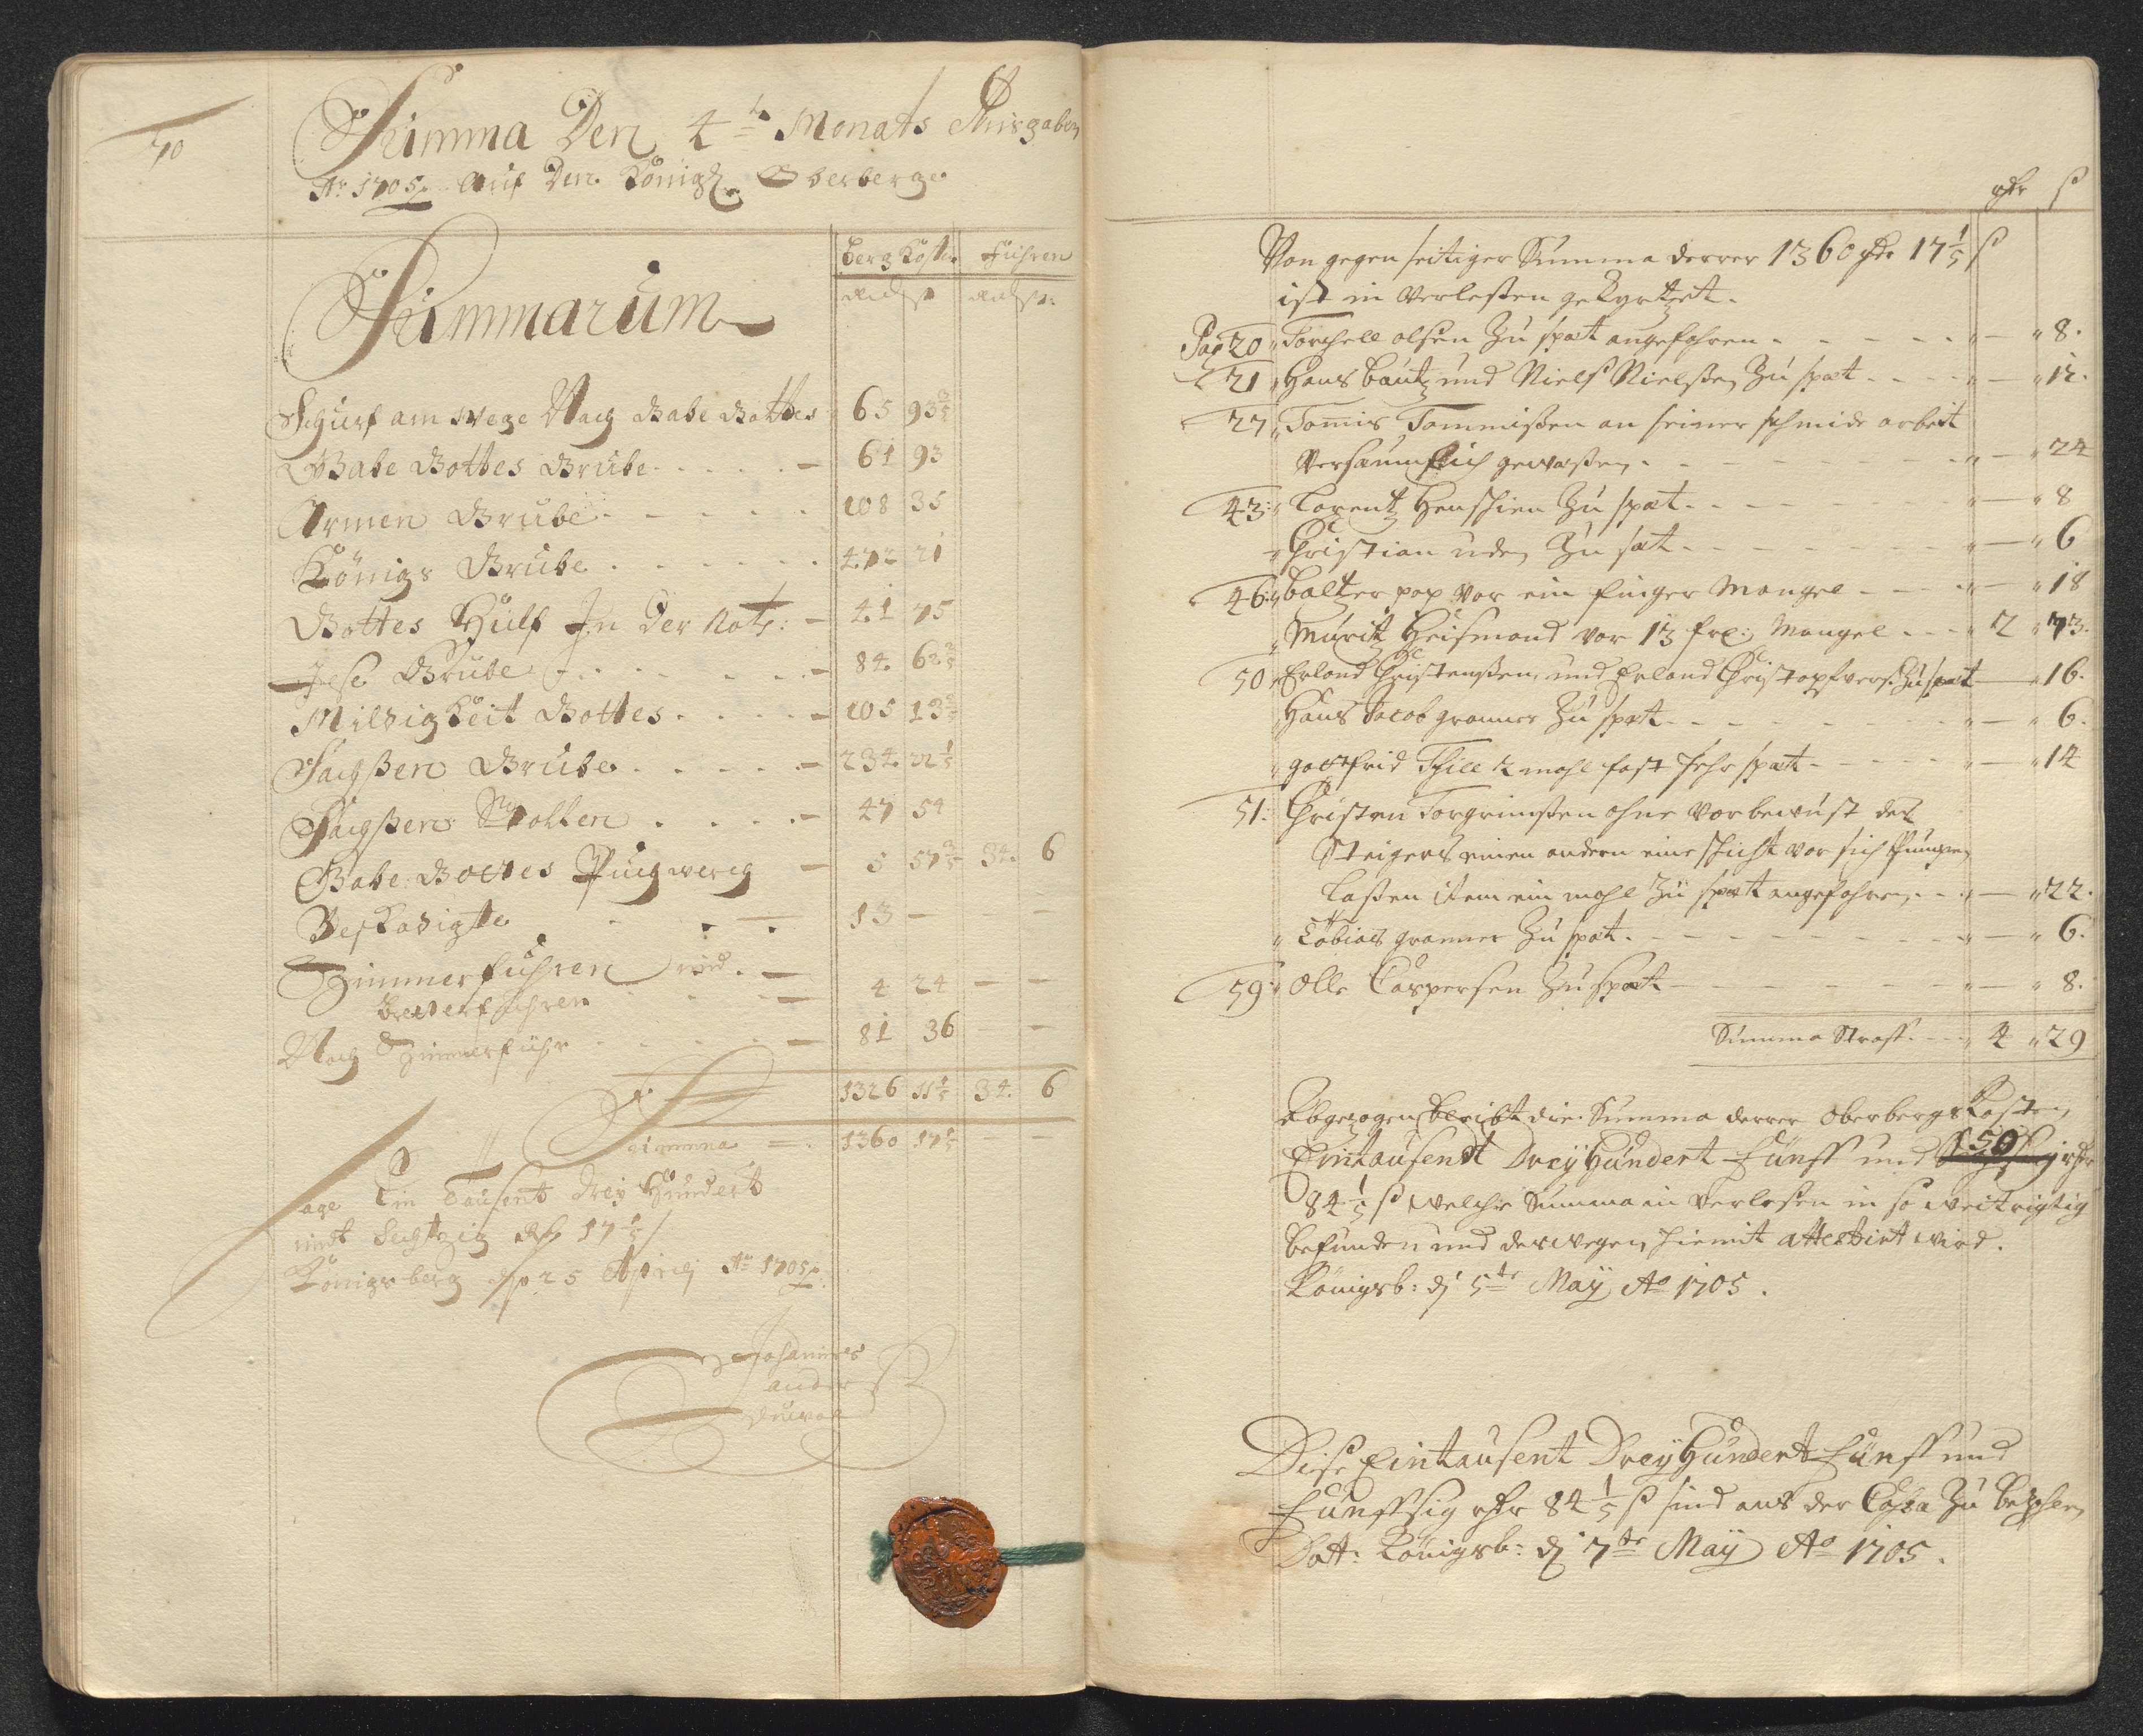 70
Summa Den 4te Monats Ausgaben
Ao 1705 auf Den Königl. Oberberge
Berg Kosten Fuhren
Summarum
Rd ß Rd ß
Schurf am Wege Nach Gabe Gottes 65 93 3/5
Gabe Gottes Grube 61 93
Armen Grube 108 35
Königs Grube 472 21
Gottes Hülf In Der Noth: 41 75
Grube 84 62 2/5
Mildigkeit Gottes 105 13 2/5
Sachßen Grube 234 22 1/5
Sachßen Stollen 47 54
Gabe Gottes Puchwerch 5 57 3/5 34 6
Beschadigte 13 — — —
Zimmerfuhren und
4 24 — —
Nach Zimmerfuhr 81 36 — —
1326 11 1/5 34 6
Summa 1360 17 1/5 — —
sage Ein Tausent drey Hundert
undt Sechtzig Rd 17 1/5 ß
Königsberg d 25 Aprilj Ao 1705
Johannes
ander
rdr ß
Von gegenseitiger Summa derer 1360 rdr 17 1/5 ß
ist in Verleßen gekürtzet.
Pag 20 Torchell olsen Zu spæt angefahren 8.
21 Hans Bautz und Niels Nielßen Zu spæt 12.
27 Tomis Tommißen an seiner schmide arbeit
Versaumlich geweßen 24
43: Lorentz Henschien Zu spæt 8
Christian uden Zu sæt 6
46: Baltzer pop vor ein finger Mangel 18
Muritz Heismand vor 13 fr: Mangel 2 73.
50 Erland Christenßen, und Erland Christopfvers: Zu spæt 16.
Hans Jacob graumer Zu spæt 6.
gottfrid Thill 2 mahl fast sehr spæt 14
51: Christen Torgrimßen ohne vorbewust des
Steigers einen andern eine schicht vor sich Pumpen
laßen item ein mahl Zu spæt angefahren 22.
Tobias graumer Zu spæt 6.
59: Olle Caspersen Zu spæt 8.
Summa Straff 4 29
Abgezogen bleibt die Summa derer Oberbergs Kosten,
50
Eintausendt Dreyhundert Fünff und Sechszig rdr
84 1/5 ß welche Summa in Verlesen in so weit rigtig
befunden und deswegen hiemit attestirt wird.
Königsb: d 5te Maÿ Ao 1705.
Dise Eintausent Dreÿhundert Fünff und
Fünffsig rdr 84 1/5 ß sind aus der Caßa Zu bezahlen
Dat: Königsb: d 7te Maÿ Ao 1705.